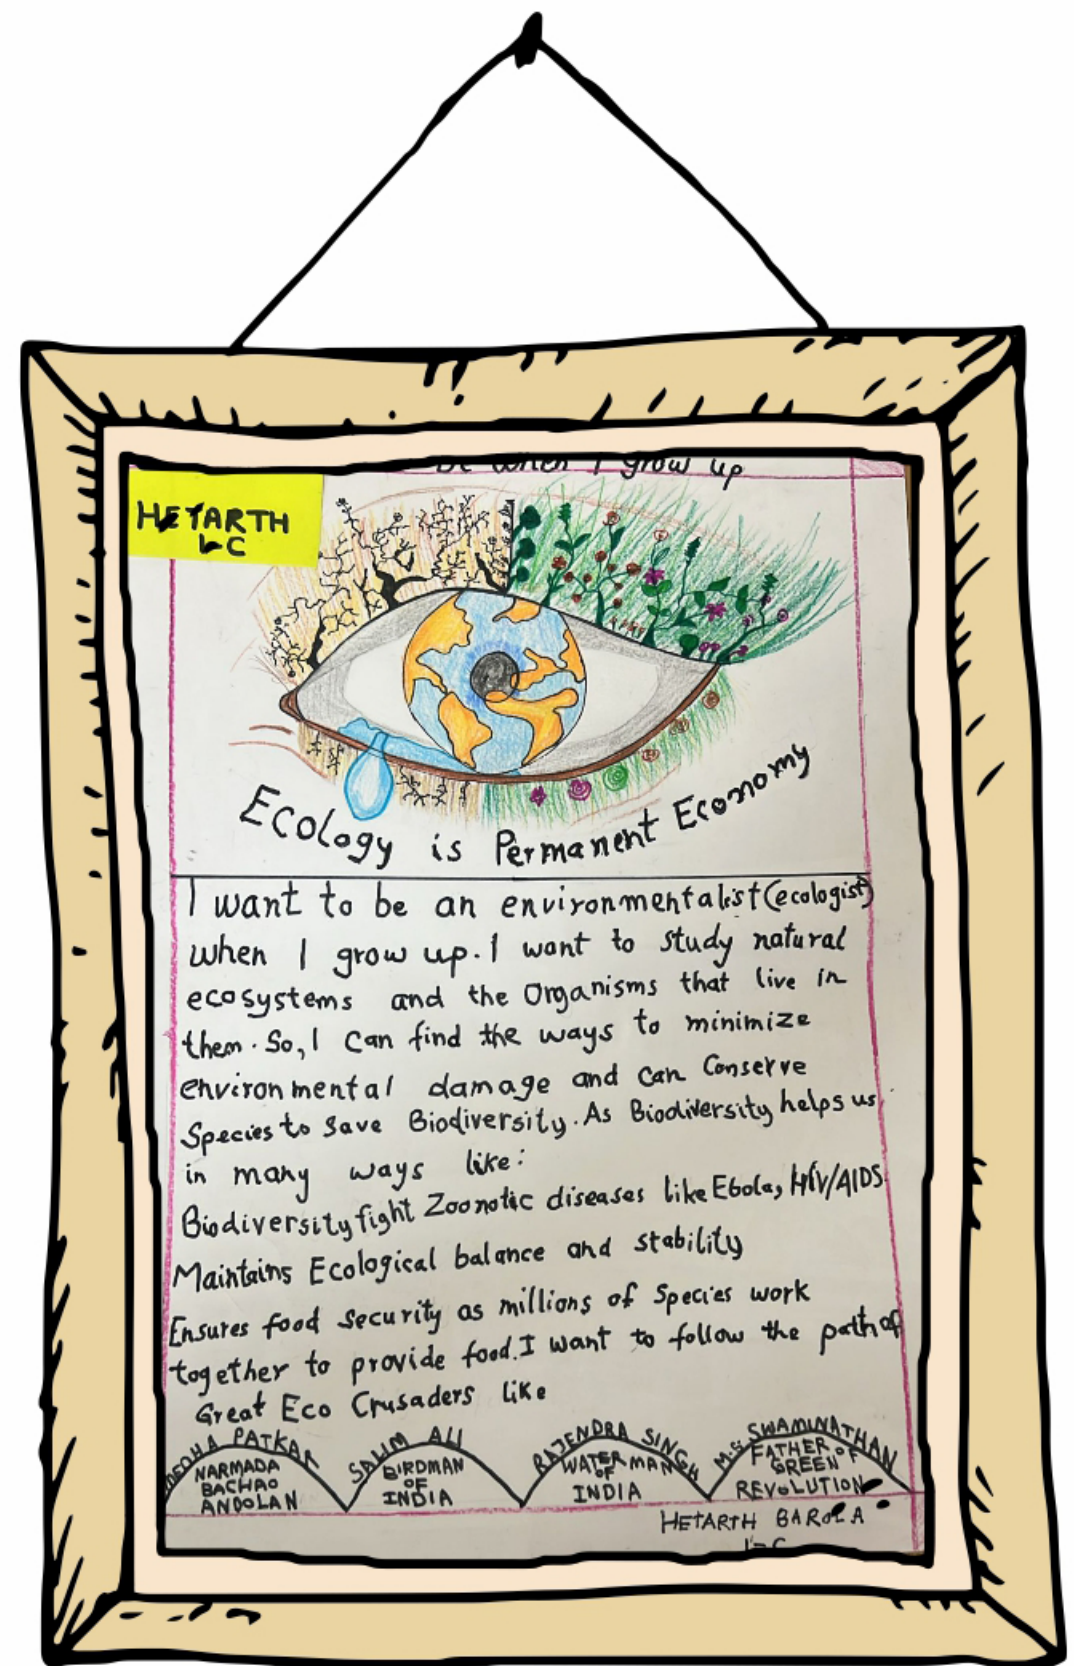 be when I grow up
HETARTH
I-C
Ecology is Permanent Economy
I want to be an environmentalist (ecologist)
when I grow up. I want to study natural
ecosystems and the Organisms that live in
them. So, I Can find the ways to minimize
environmental damage and can Conserve
Species to Save Biodiversity. As Biodiversity helps us
in many ways like:
Biodiversity fight Zoonotic diseases like Ebola, HIV/AIDS
Maintains Ecological balance and stability
Ensures food security as millions of Species work
together to provide food. I want to follow the path of
Great Eco Crusaders like
MEDHA PATKAR
NARMADA
BACHAO
ANDOLAN
SALIM ALI
BIRDMAN
OF
INDIA
RAJENDRA SINGH
WATER MAN
OF
INDIA
M.S. SWAMINATHAN
FATHER OF
GREEN
REVOLUTION
HETARTH
I-C